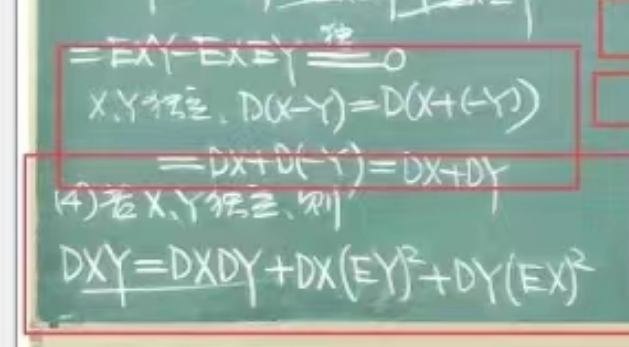 =EXY-EXEY 独 0
X、Y独立、D(X-Y)=D(X+(-Y))
=DX+D(-Y)=DX+DY
(4)若X、Y独立、则
DXY=DXDY+DX(EY)²+DY(EX)²